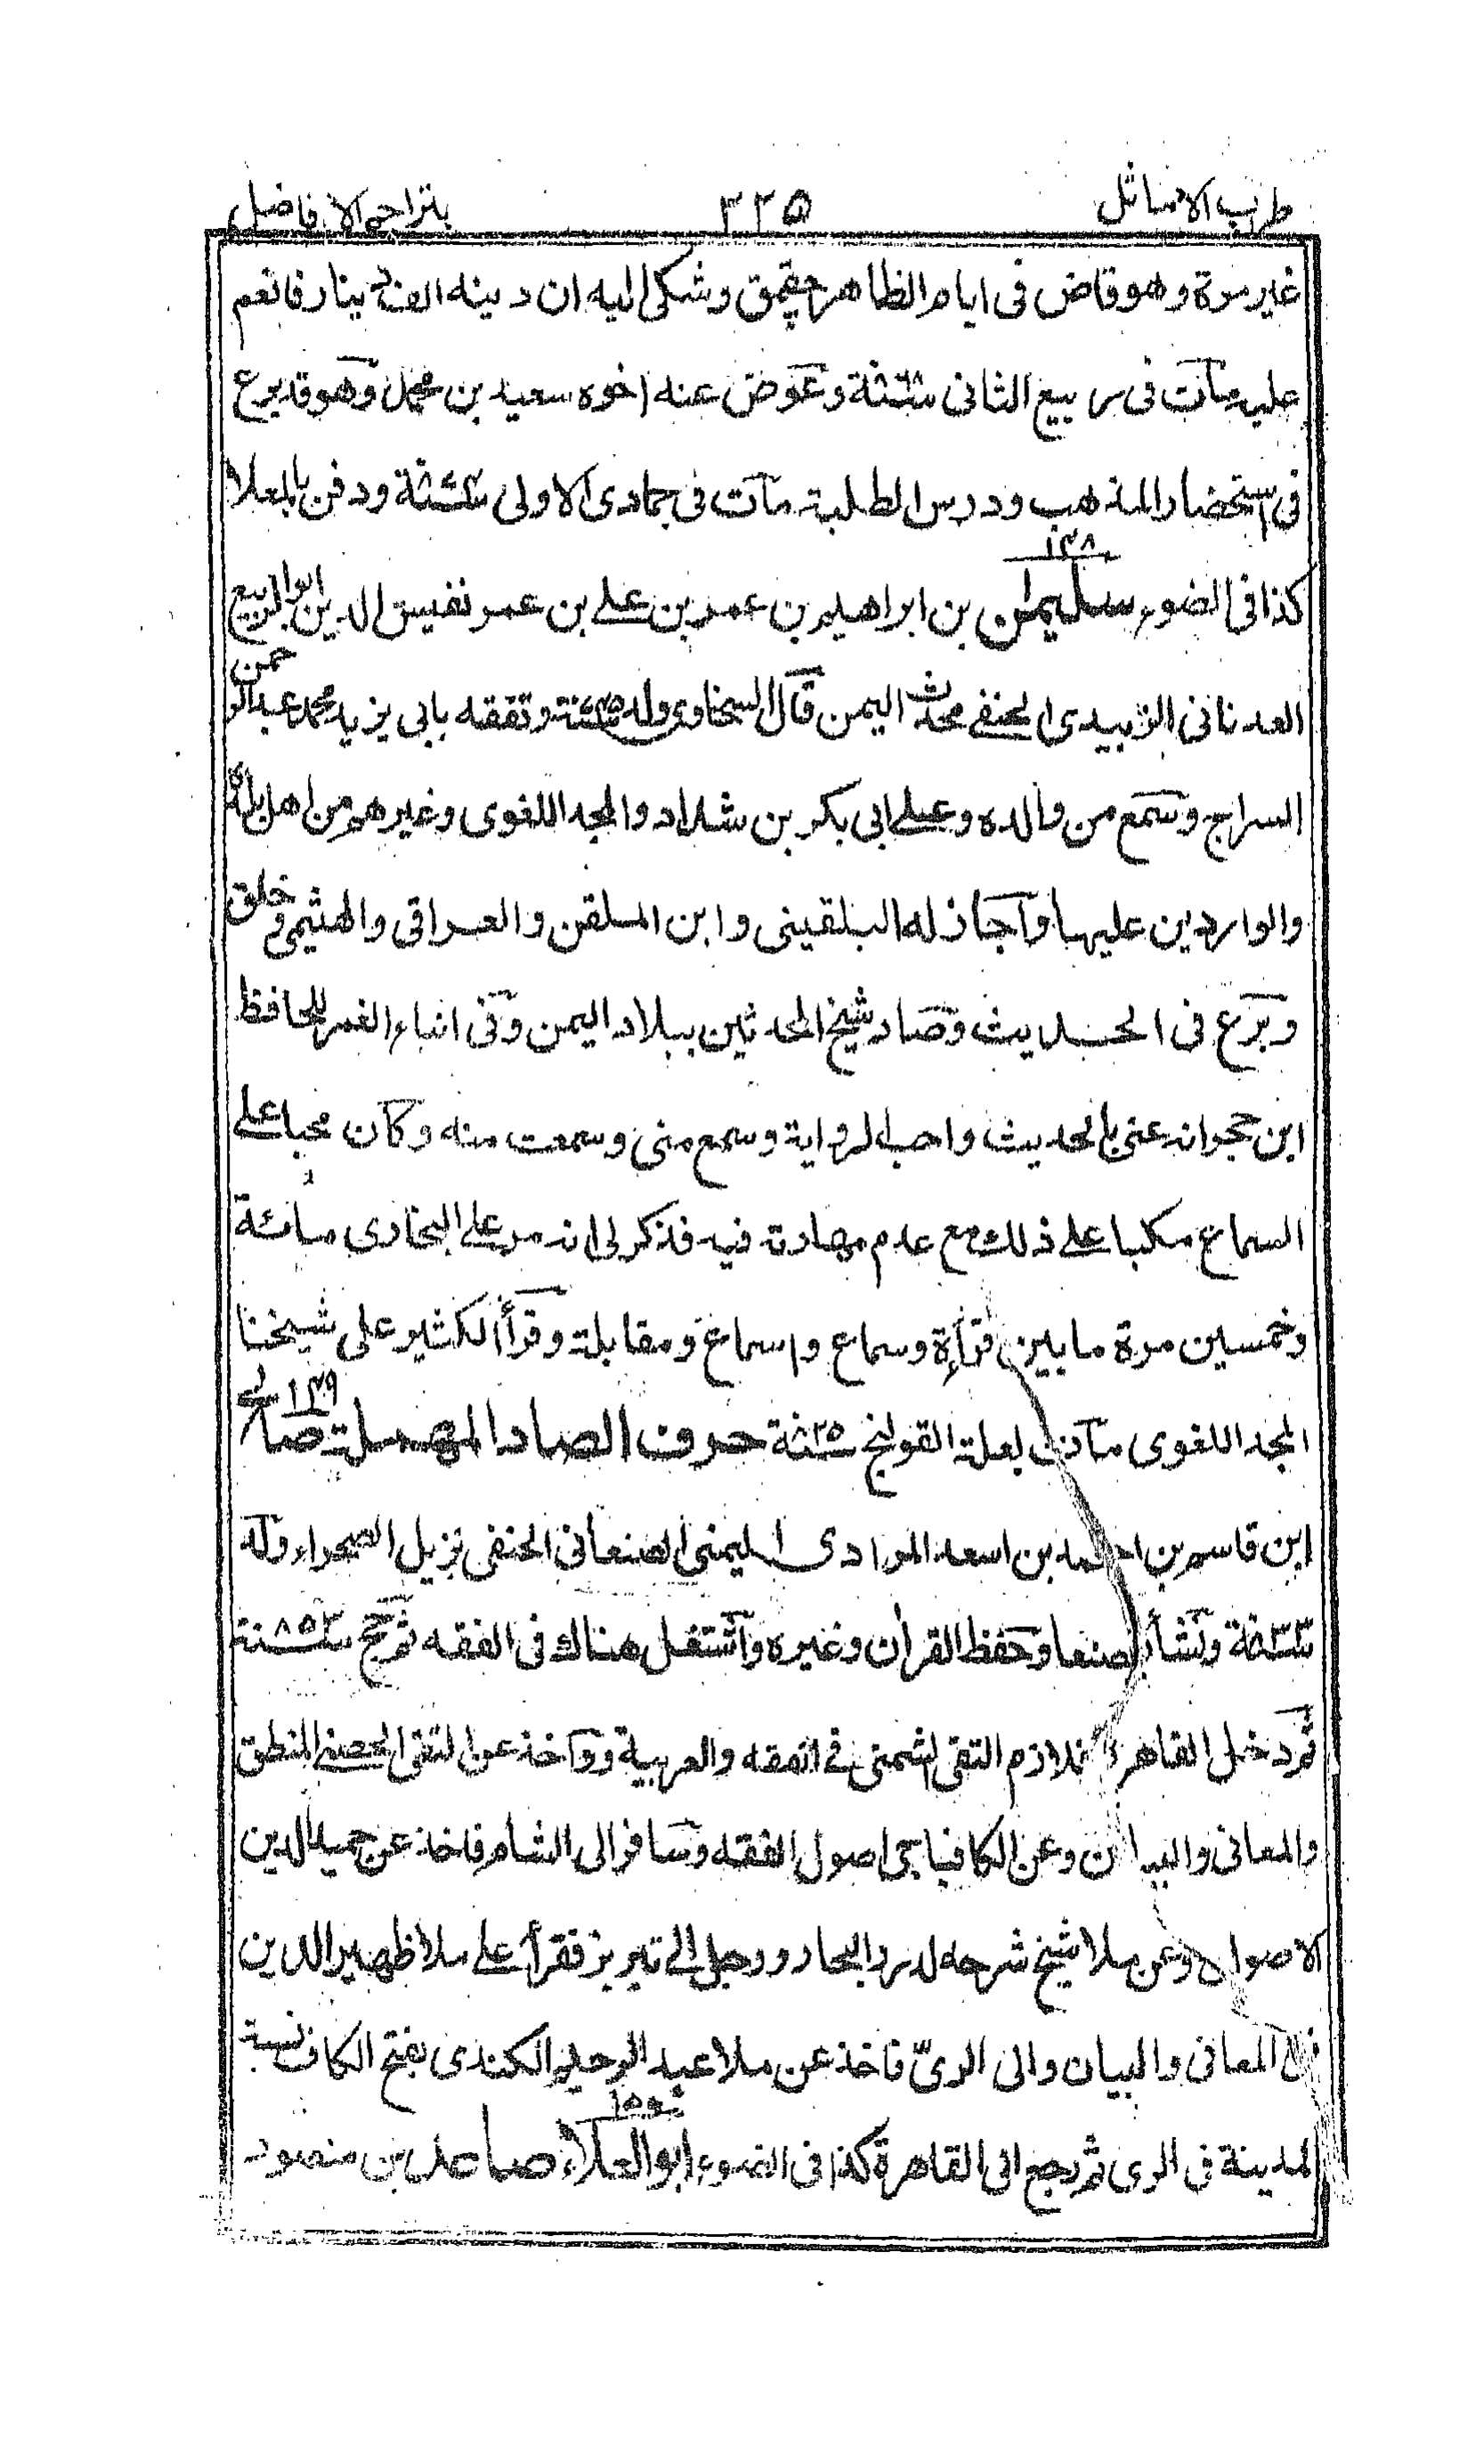 طرب الاماثل ٢٢٥ بتراجم الافاضل
غير مرة وهو قاض فى ايام الظاهر جقمق وشكى اليه ان دينه الف دينار فانعم
عليه مات فى ربيع الثانى سنة وعوض عنه اخوه سعيد بن محمد وهو قد برع
فى استحضار المذهب ودرس الطلبة مات فى جمادى الاولى سنة ودفن بالمعلا
١٤٨
كذا فى الضوء سليمان بن ابراهيم بن عمر بن على بن عمر نفيس الدين ابو الربيع
العدنانى الزبيدى الحنفى محدث اليمن قال السخاوى ولد سنة وتفقه بابى يزيد محمد عبد الرحمن
السراج وسمع من والده وعلى ابى بكر بن شداد والمجد اللغوى وغيرهم من اهل بلده
والواردين عليها واجاز له البلقينى وابن الملقن والعراقى والهيثمى وخلق
وبرع فى الحديث وصار شيخ المحدثين ببلاد اليمن وفى انباء الغمر للحافظ
ابن حجر انه عنى بالحديث واحب الرواية وسمع منى وسمعت منه وكان محبا على
السماع مكبا على ذلك مع عدم مهارته فيه فذكر لى انه مر على البخارى مائة
وخمسين مرة ما بين قرأة وسماع واسماع ومقابلة وقرأ الكثير على شيخنا
١٤٩
المجد اللغوى مات بعلة القولنج سنة ٨٢٥ حرف الصاد المهملة صالح
ابن قاسم بن احمد بن اسعد المرادى اليمنى الصنعانى الحنفى نزيل الصحراء ولد
سنة ونشأ بصنعا وحفظ القرآن وغيره واشتغل هناك فى الفقه ثم حج سنة ٨٥٣
ثم دخل القاهرة فلازم التقى الشمنى فى الفقه والعربية واخذ عن التقى الحصنى المنطق
والمعانى والبيان وعن الكافياجى اصول الفقه وسافر الى الشام فاخذ عن حميد الدين
الاصول وعن ملا شيخ شرحه لدرر البحار ورحل الى تبريز فقرأ على ملا ظهير الدين
فى المعانى والبيان والى الرىّ فاخذ عن ملا عبد الرحيم الكندى بفتح الكاف نسبة
١٥٠
لمدينة فى الرى ثم رجع الى القاهرة كذا فى الضوء ابو العلاء صاعد بن منصور